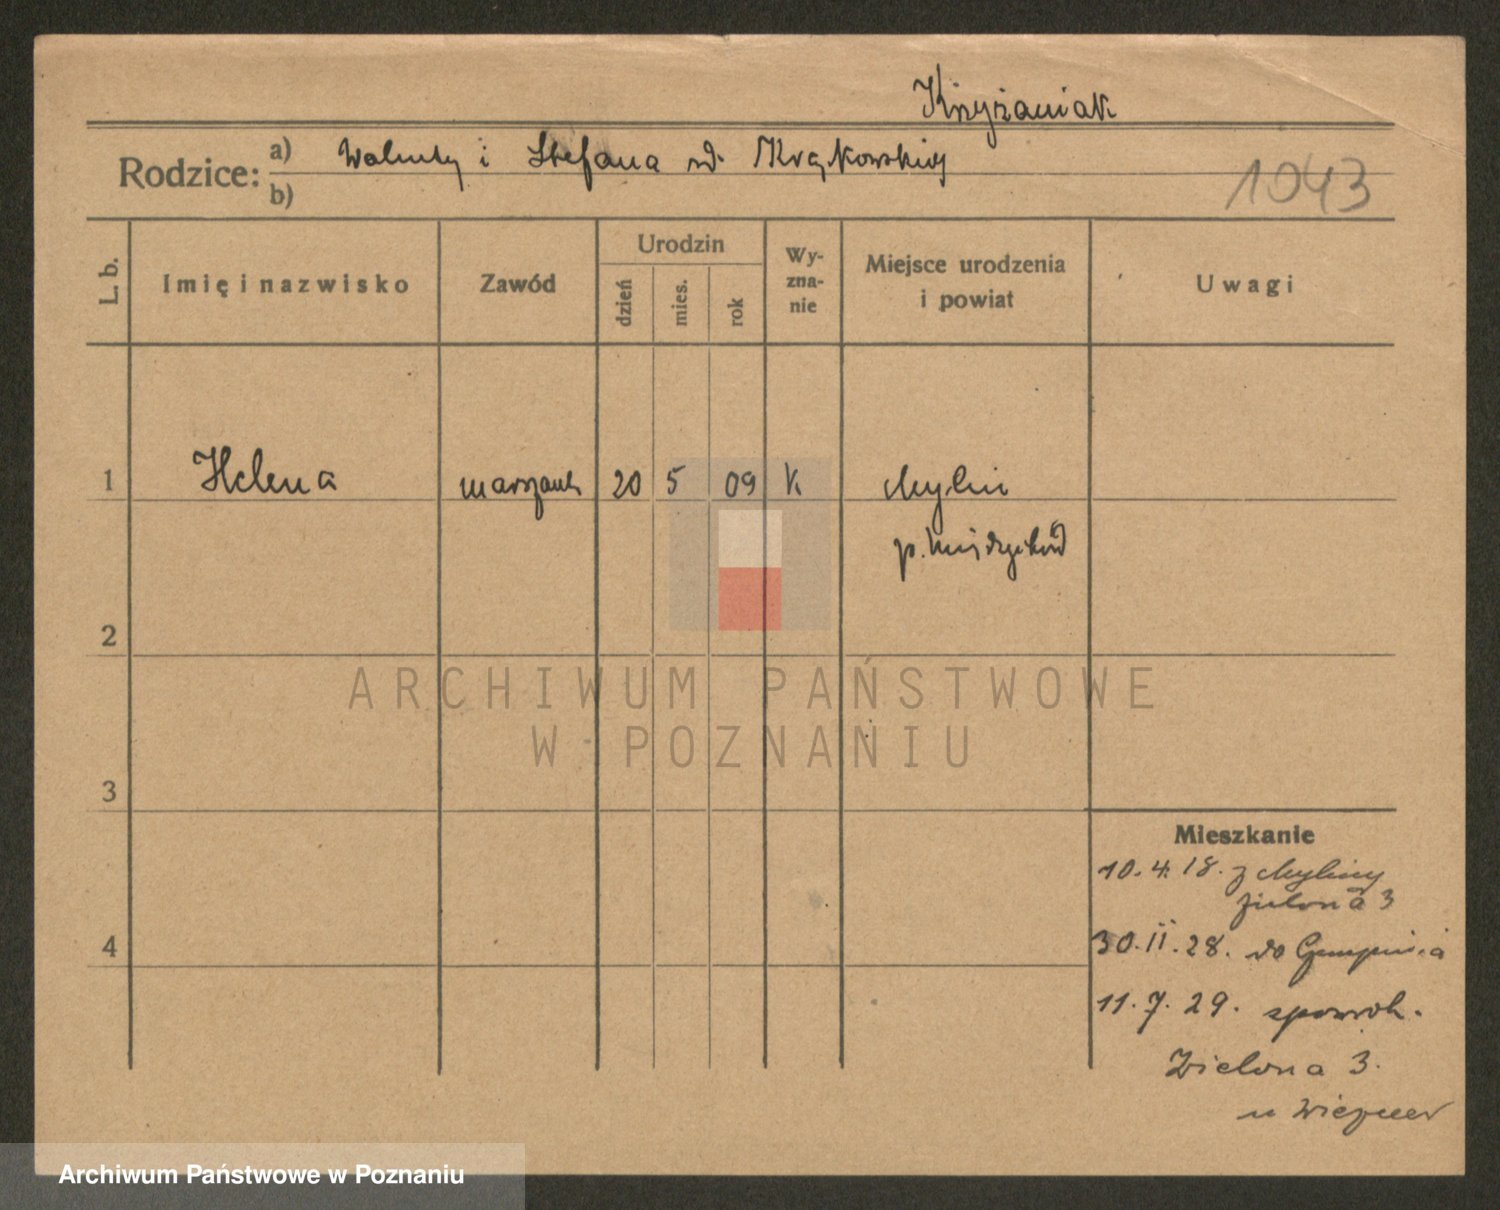 Krzyżaniak
Rodzice: a) Walenty i Stefana zd. Krąkowskiej
b)
1043
L. b.
Imię i nazwisko
Zawód
Urodzin
dzień
mies.
rok
Wy-
zna-
nie
Miejsce urodzenia
i powiat
Uwagi
1 Helena 20 5 09 K Mylin
p. Międzychód
2
3
4
Mieszkanie
10.4.18. z Myliny
Zielona 3
30.11.28. do
11.7.29. spowrot.
Zielona 3.
u
ARCHIWUM PAŃSTWOWE
W POZNANIU
Archiwum Państwowe w Poznaniu